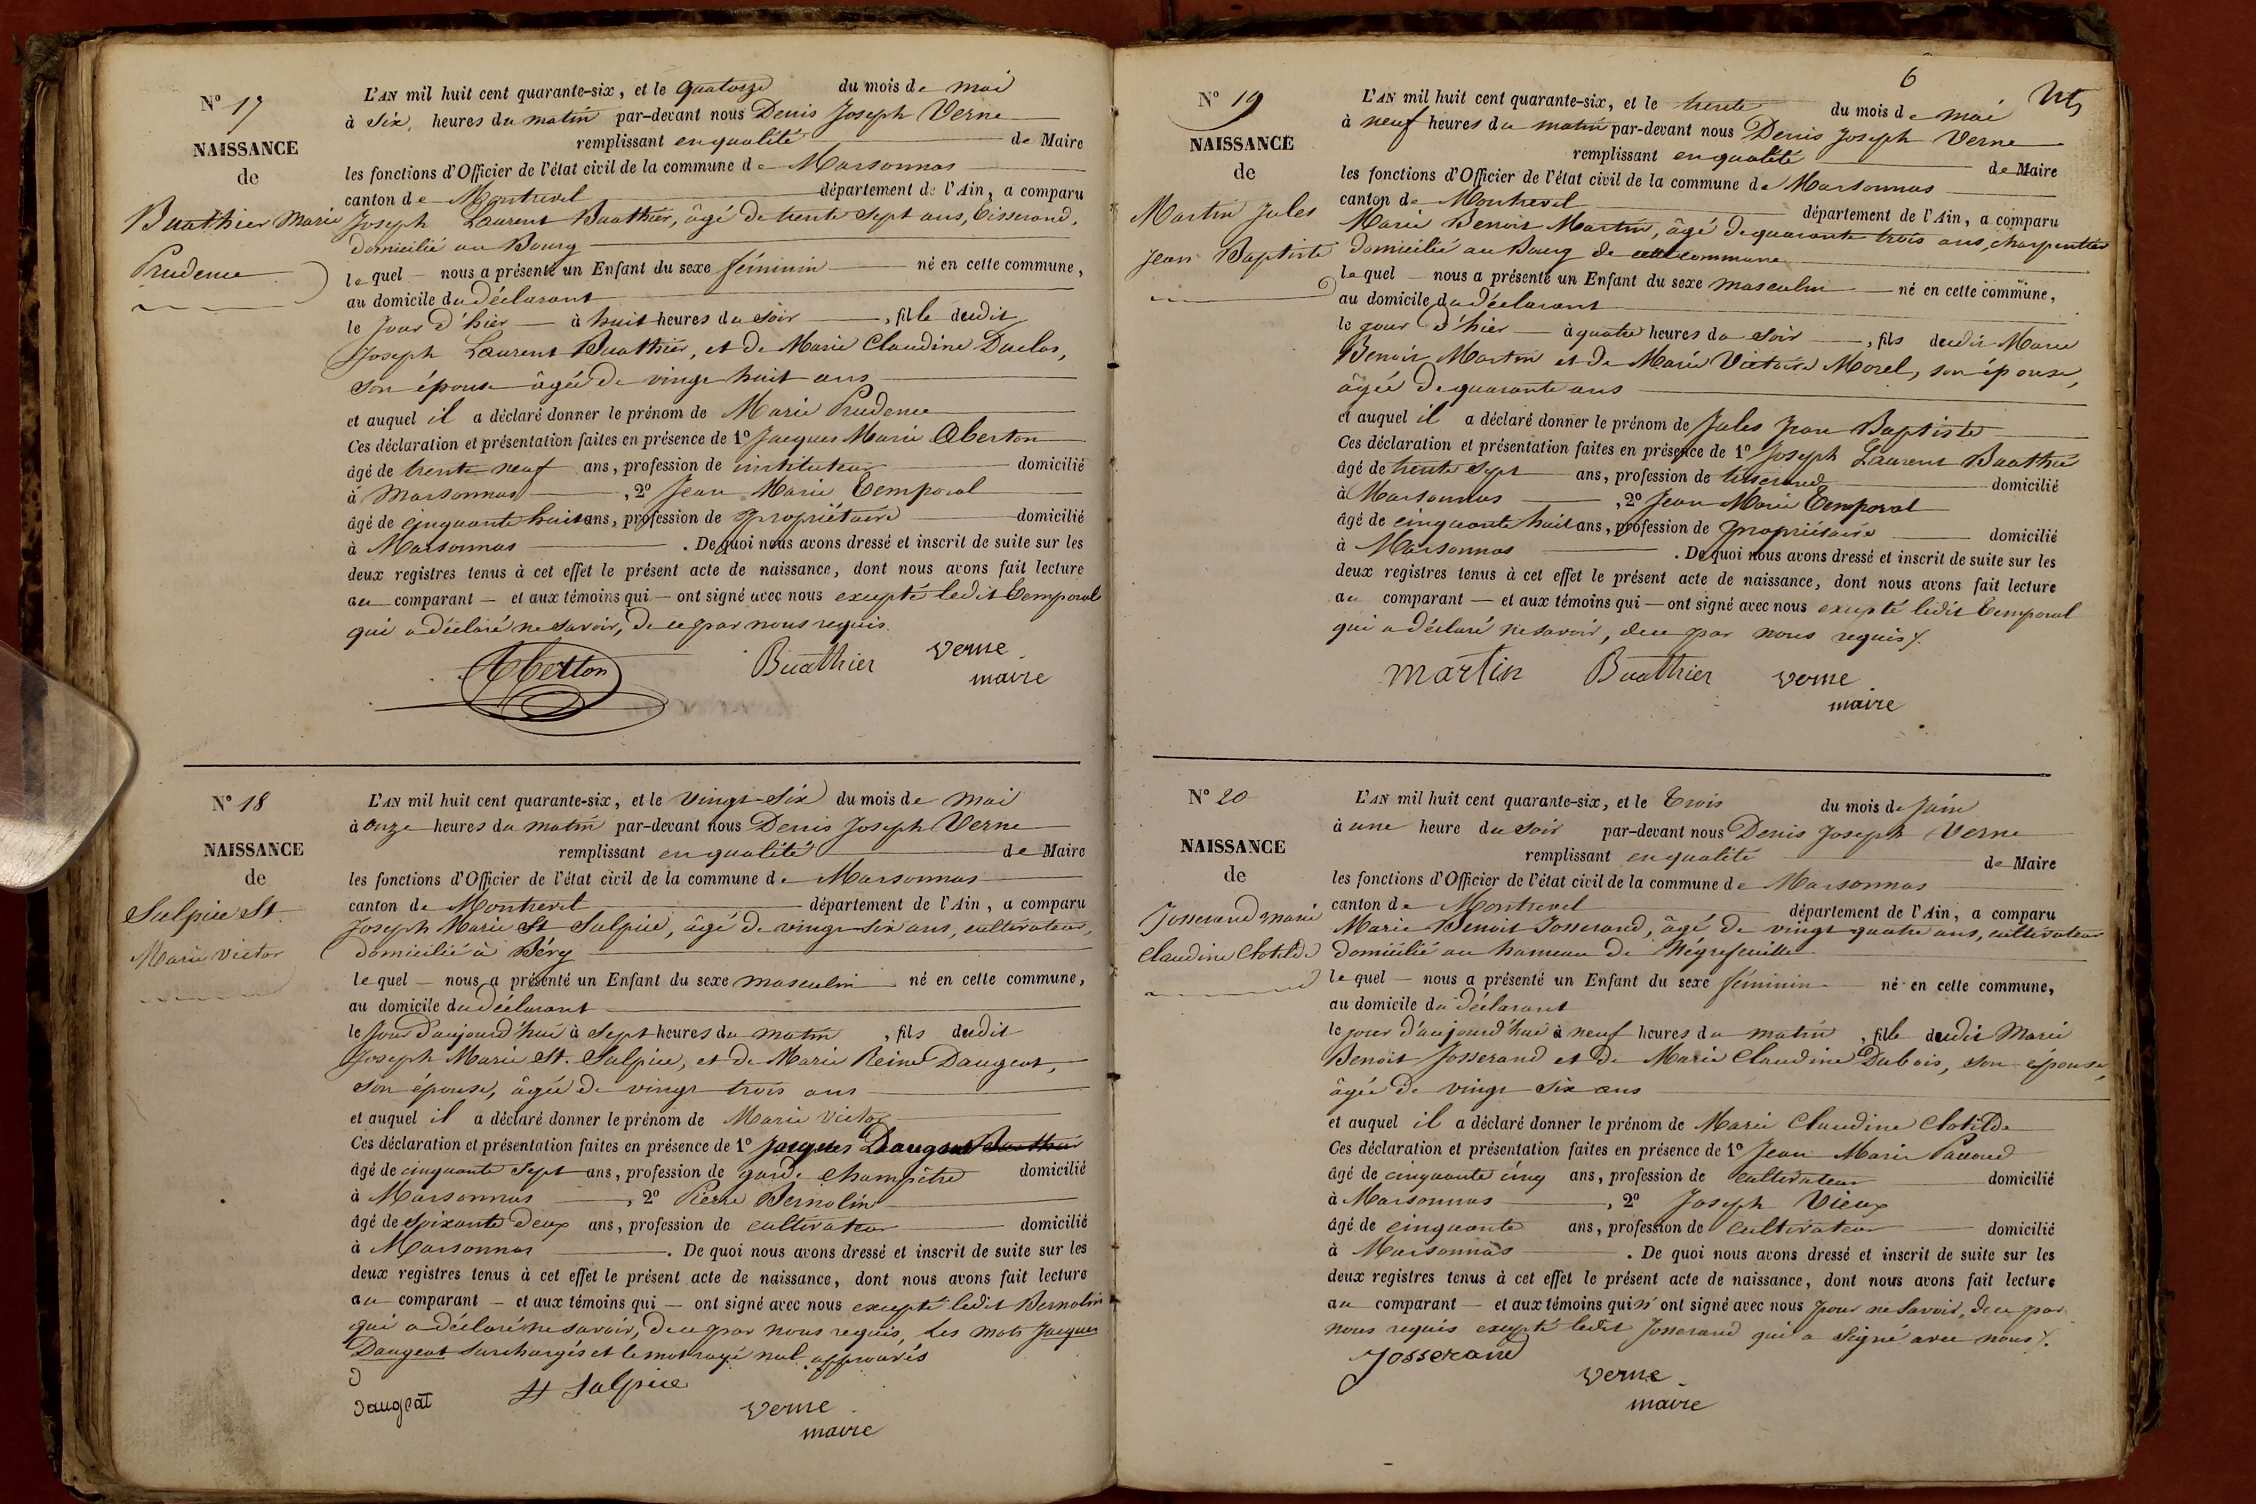 N° 17
NAISSANCE
de
Buathier Marie
Prudence
L'AN mil huit cent quarante-six, et le quatorze du mois de mai
à six heures du matin par-devant nous Denis Joseph Verne
remplissant en qualité de Maire
les fonctions d'Officier de l'état civil de la commune de Marsonnas
canton de Montrevel département de l'Ain, a comparu
Joseph Laurent Buathier, âgé de trente sept ans, tisserand,
domicilié au Bourg
lequel nous a présenté un Enfant du sexe féminin né en cette commune,
au domicile du déclarant
le jour d'hier à huit heures du soir, fille dudit
Joseph Laurent Buathier, et de Marie Claudine Duclos,
son épouse âgée de vingt huit ans
et auquel il a déclaré donner le prénom de Marie Prudence
Ces déclaration et présentation faites en présence de 1° Jacques Marie Aberton
âgé de trente neuf ans, profession de instituteur domicilié
à Marsonnas, 2° Jean Marie Temporal
âgé de cinquante huit ans, profession de propriétaire domicilié
à Marsonnas. De quoi nous avons dressé et inscrit de suite sur les
deux registres tenus à cet effet le présent acte de naissance, dont nous avons fait lecture
au comparant et aux témoins qui ont signé avec nous excepté ledit Temporal
qui a déclaré ne savoir, de ce par nous requis.
Aberton Buathier Verne
maire
N° 18
NAISSANCE
de
Sulpice St.
Marie Victor
L'AN mil huit cent quarante-six, et le vingt-six du mois de mai
à onze heures du matin par-devant nous Denis Joseph Verne
remplissant en qualité de Maire
les fonctions d'Officier de l'état civil de la commune de Marsonnas
canton de Montrevel département de l'Ain, a comparu
Joseph Marie St Sulpice, âgé de vingt six ans, cultivateur,
domicilié à Béry
lequel nous a présenté un Enfant du sexe masculin né en cette commune,
au domicile du déclarant
le jour d'aujourd'hui à sept heures du matin, fils dudit
Joseph Marie St. Sulpice, et de Marie Reine Daugeat,
son épouse, âgée de vingt trois ans
et auquel il a déclaré donner le prénom de Marie Victor
Ces déclaration et présentation faites en présence de 1° Jacques Daugeat Buathier
âgé de cinquante sept ans, profession de garde champêtre domicilié
à Marsonnas, 2° Pierre Bernolin
âgé de soixante deux ans, profession de cultivateur domicilié
à Marsonnas. De quoi nous avons dressé et inscrit de suite sur les
deux registres tenus à cet effet le présent acte de naissance, dont nous avons fait lecture
au comparant et aux témoins qui ont signé avec nous excepté ledit Bernolin
qui a déclaré ne savoir, de ce par nous requis, Les mots Jacques
Daugeat surchargés et le mot rayé nul approuvés
Daugeat St Sulpice Verne
maire
6
N° 19
NAISSANCE
de
Martin Jules
Jean Baptiste
L'AN mil huit cent quarante-six, et le trente du mois de mai
à neuf heures du matin par-devant nous Denis Joseph Verne
remplissant en qualité de Maire
les fonctions d'Officier de l'état civil de la commune de Marsonnas
canton de Montrevel département de l'Ain, a comparu
Marie Benoit Martin, âgé de quarante trois ans, charpentier
domicilié au Bourg de cette commune
lequel nous a présenté un Enfant du sexe masculin né en cette commune,
au domicile du déclarant
le jour d'hier à quatre heures du soir, fils dudit Marie
Benoit Martin et de Marie Victoire Morel, son épouse,
âgée de quarante ans
et auquel il a déclaré donner le prénom de Jules Jean Baptiste
Ces déclaration et présentation faites en présence de 1° Joseph Laurent Buathier
âgé de trente sept ans, profession de tisserand domicilié
à Marsonnas, 2° Jean Marie Temporal
âgé de cinquante huit ans, profession de propriétaire domicilié
à Marsonnas. De quoi nous avons dressé et inscrit de suite sur les
deux registres tenus à cet effet le présent acte de naissance, dont nous avons fait lecture
au comparant et aux témoins qui ont signé avec nous excepté ledit Temporal
qui a déclaré ne savoir, de ce par nous requis.
Martin Buathier Verne
maire
N° 20
NAISSANCE
de
Josserand Marie
Claudine Clotilde
L'AN mil huit cent quarante-six, et le trois du mois de juin
à une heure du soir par-devant nous Denis Joseph Verne
remplissant en qualité de Maire
les fonctions d'Officier de l'état civil de la commune de Marsonnas
canton de Montrevel département de l'Ain, a comparu
Marie Benoit Josserand, âgé de vingt quatre ans, cultivateur
domicilié au hameau de Négrefeuille
lequel nous a présenté un Enfant du sexe féminin né en cette commune,
au domicile du déclarant
le jour d'aujourd'hui à neuf heures du matin, fille dudit Marie
Benoit Josserand et de Marie Claudine Dubois, son épouse,
âgée de vingt six ans
et auquel il a déclaré donner le prénom de Marie Claudine Clotilde
Ces déclaration et présentation faites en présence de 1° Jean Marie Paccoud
âgé de cinquante cinq ans, profession de cultivateur domicilié
à Marsonnas, 2° Joseph Vieux
âgé de cinquante ans, profession de cultivateur domicilié
à Marsonnas. De quoi nous avons dressé et inscrit de suite sur les
deux registres tenus à cet effet le présent acte de naissance, dont nous avons fait lecture
au comparant et aux témoins qui n'ont signé avec nous pour ne savoir, de ce par
nous requis excepté ledit Josserand qui a signé avec nous.
Josserand
Verne
maire